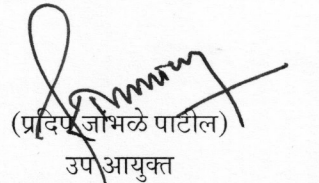 (प्रदिप जांभळे पाटील)
उप आयुक्त